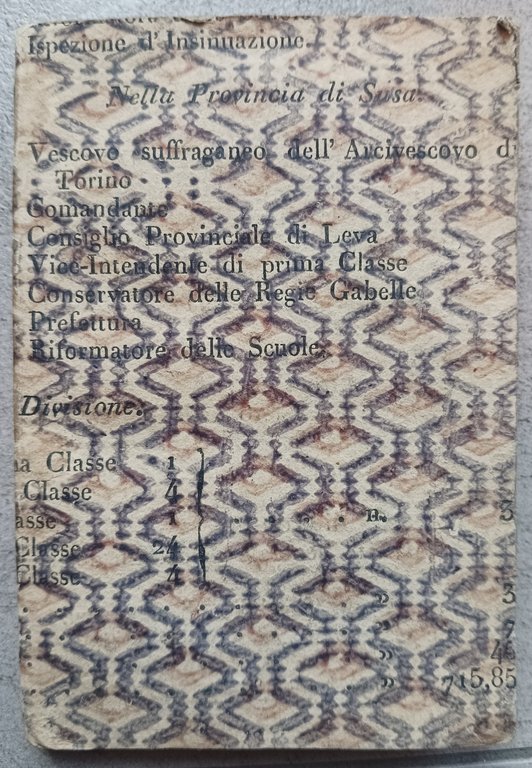 Ispezione d'Insinuazione.
Nella Provincia di Susa.
Vescovo suffraganeo dell'Arcivescovo d
Torino . . .
Comandante
Consiglio Provinciale di Leva
Vice-Intendente di prima Classe
Conservatore delle Regie Gabelle
Prefettura
Riformatore delle Scuole.
Divisione.
a Classe 1
Classe 4
asse 1 . . . . . . n. 3
Classe 24
Classe 4
. . . . . . . . . » 3
. . . . . . . . . » 7
. . . . . . . . . » 46
. . . . . . . . . » 715,85